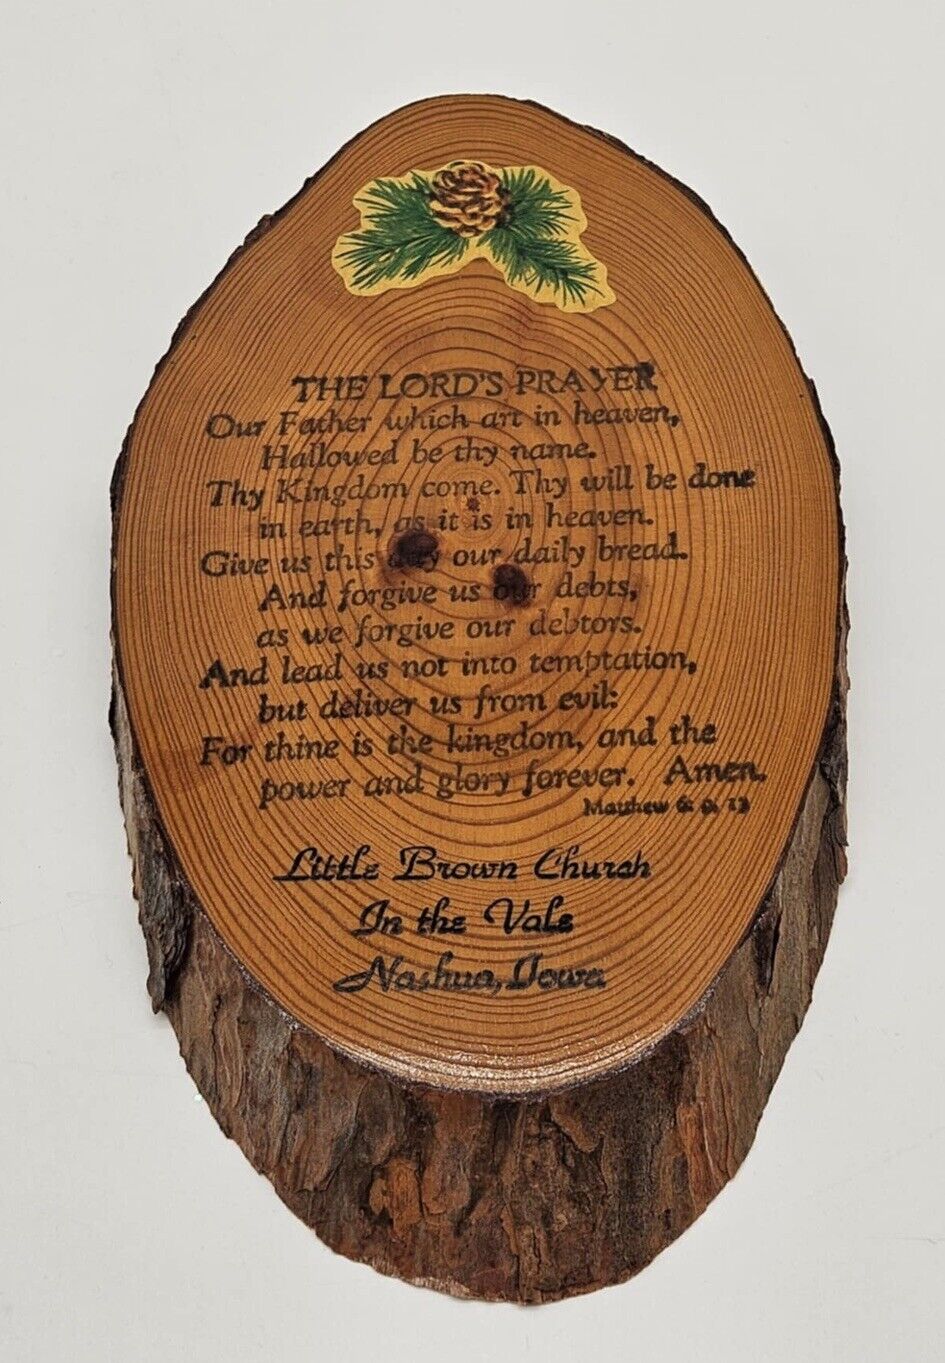 THE LORD'S PRAYER
Our Father which art in heaven,
Hallowed be thy name.
Thy Kingdom come. Thy will be done
in earth, as it is in heaven.
Give us this day our daily bread.
And forgive us our debts,
as we forgive our debtors.
And lead us not into temptation,
but deliver us from evil:
For thine is the kingdom, and the
power and glory forever. Amen.
Matthew 6: 9, 13
Little Brown Church
In the Vale
Nashua, Iowa